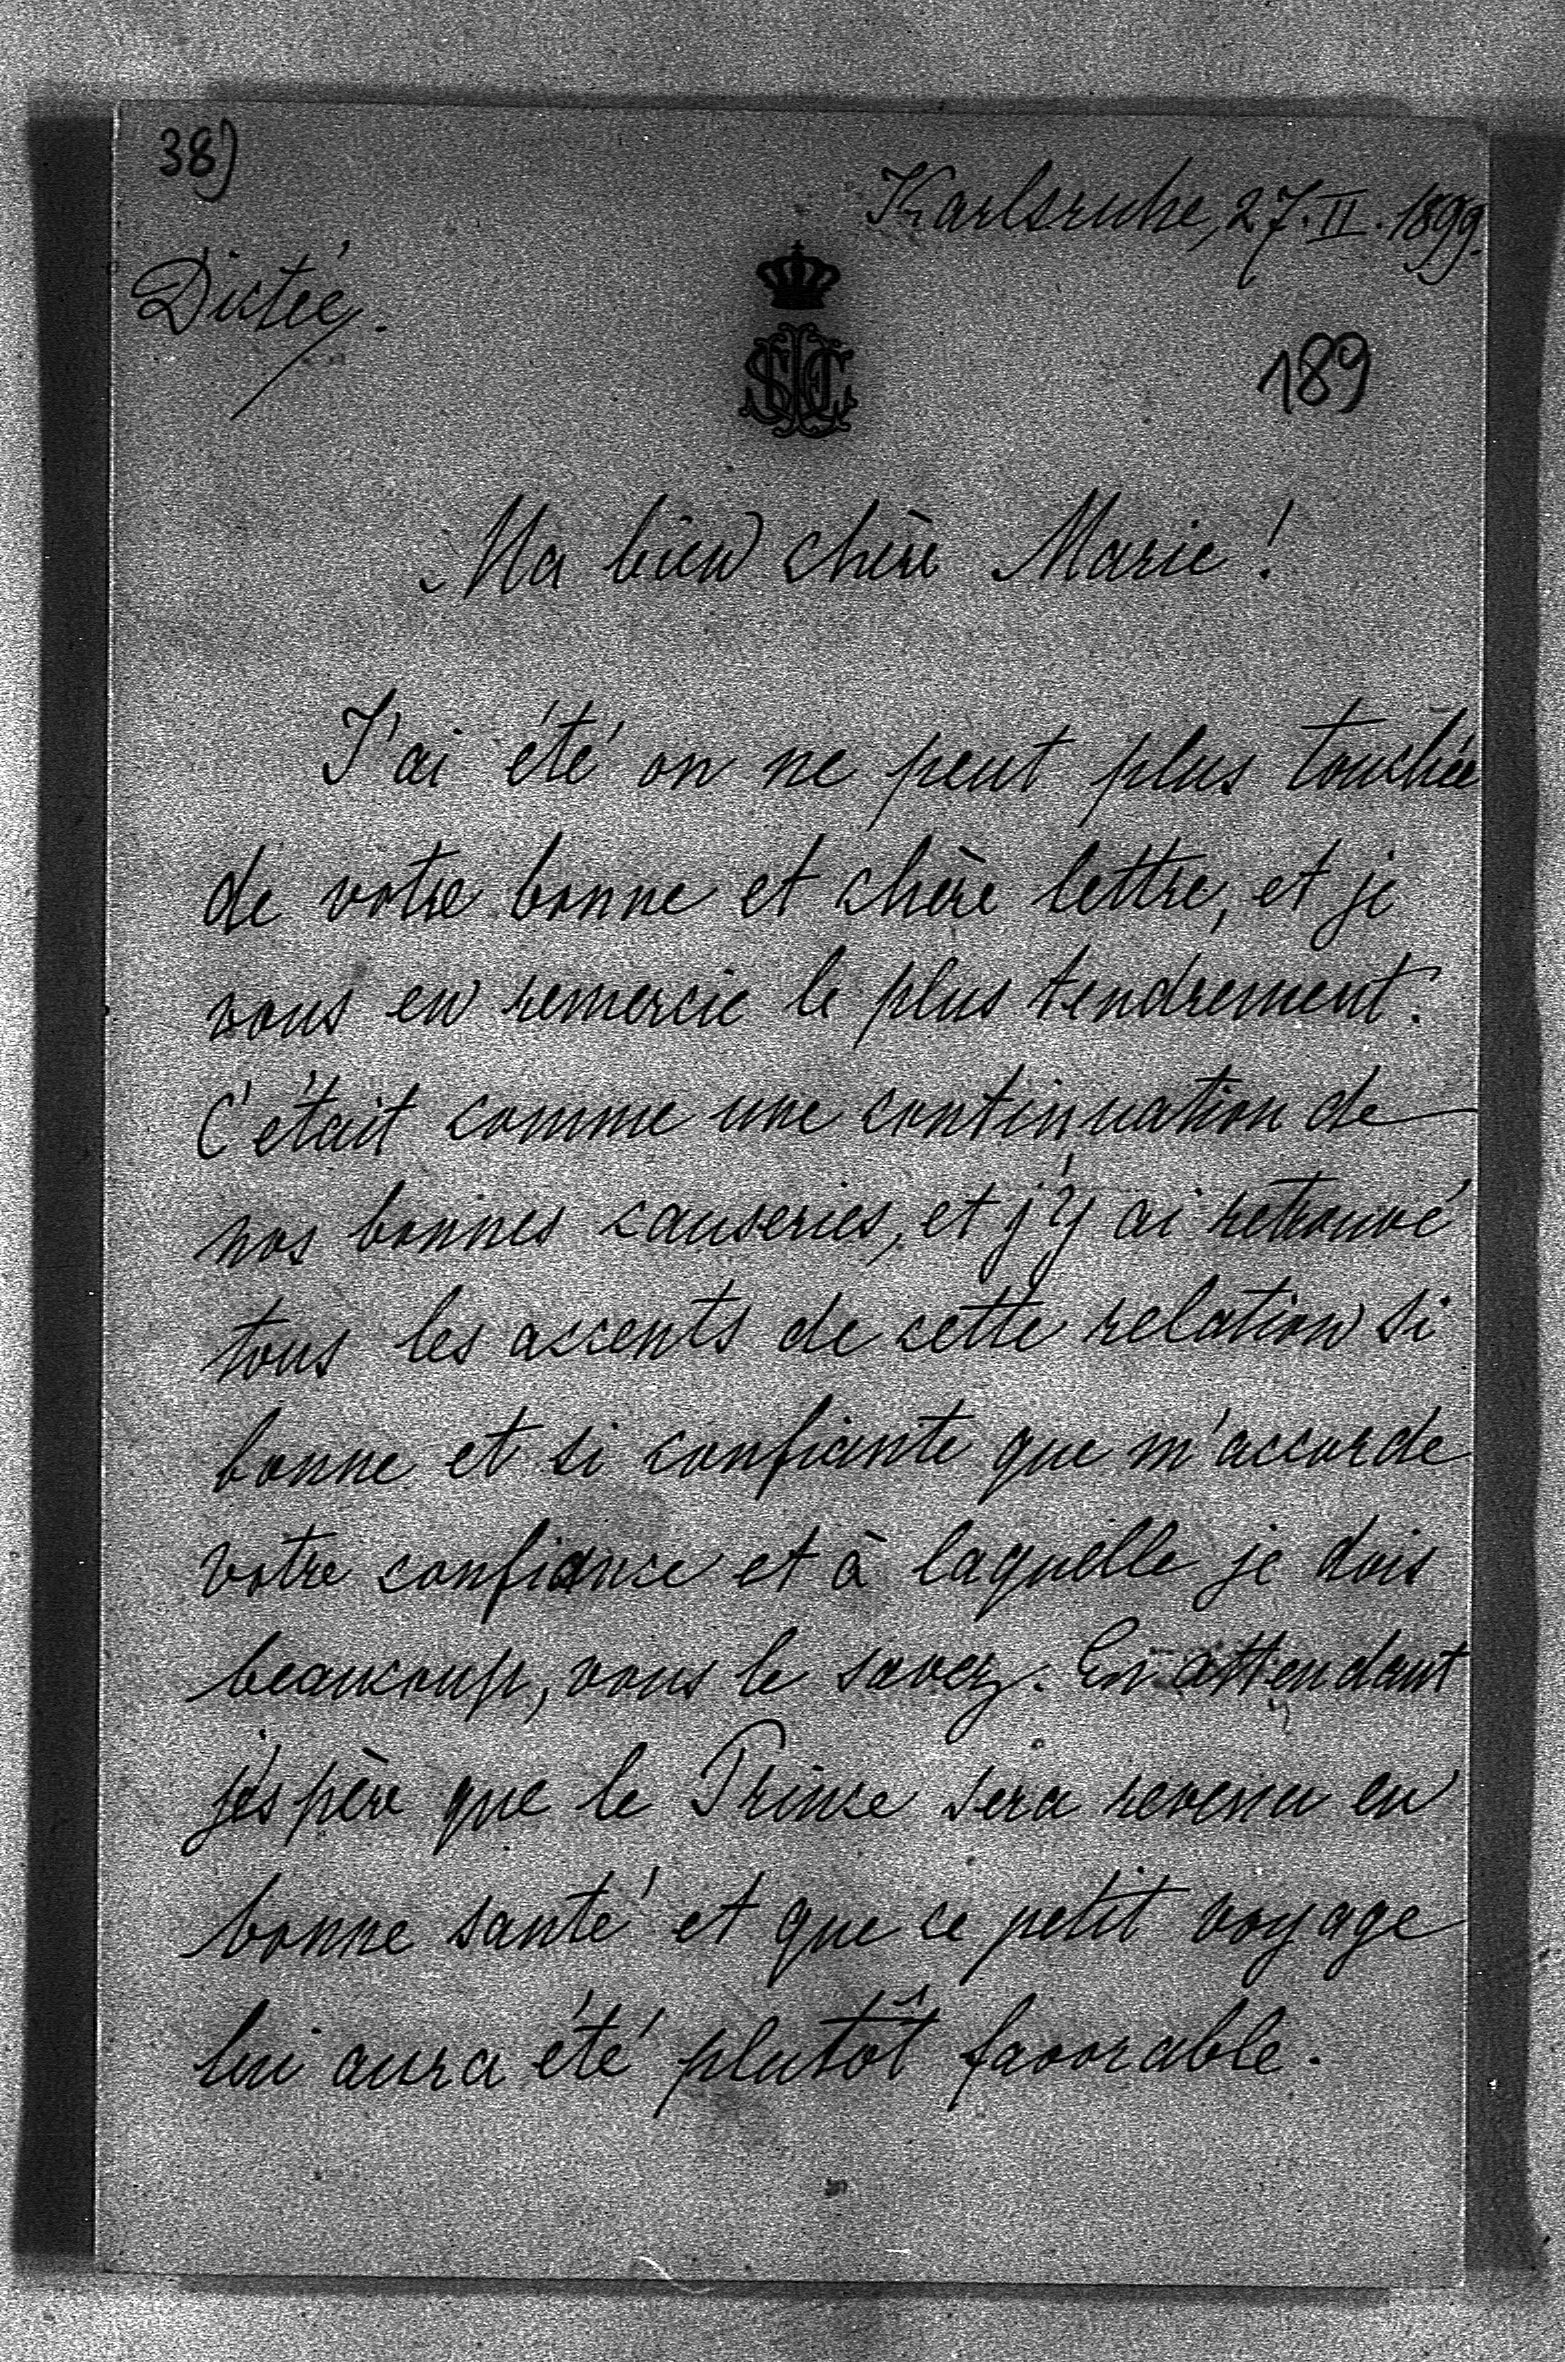 38)
Karlsruhe, 27. II. 1899.
Dictée.
189
Ma bien chère Marie!
J'ai été on ne peut plus touchée
de votre bonne et chère lettre, et je
vous en remercie le plus tendrement.
C'était comme une continuation de
nos bonnes causeries, et j'y ai retrouvé
tous les accents de cette relation si
bonne et si confiante que m'accorde
votre confiance et à laquelle je dois
beaucoup, vous le savez. En attendant
j'éspère que le Prince sera revenu en
bonne santé et que ce petit voyage
lui aura été plutôt favorable.